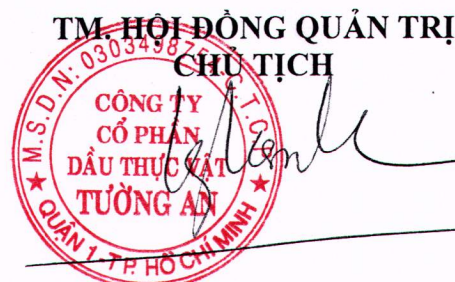 TM. HỘI ĐỒNG QUẢN TRỊ
CHỦ TỊCH
M.S.D.N: C.T.C.P
CÔNG TY
CỔ PHẦN
DẦU THỰC VẬT
TƯỜNG AN
QUẬN 1 - T.P. HỒ CHÍ MINH